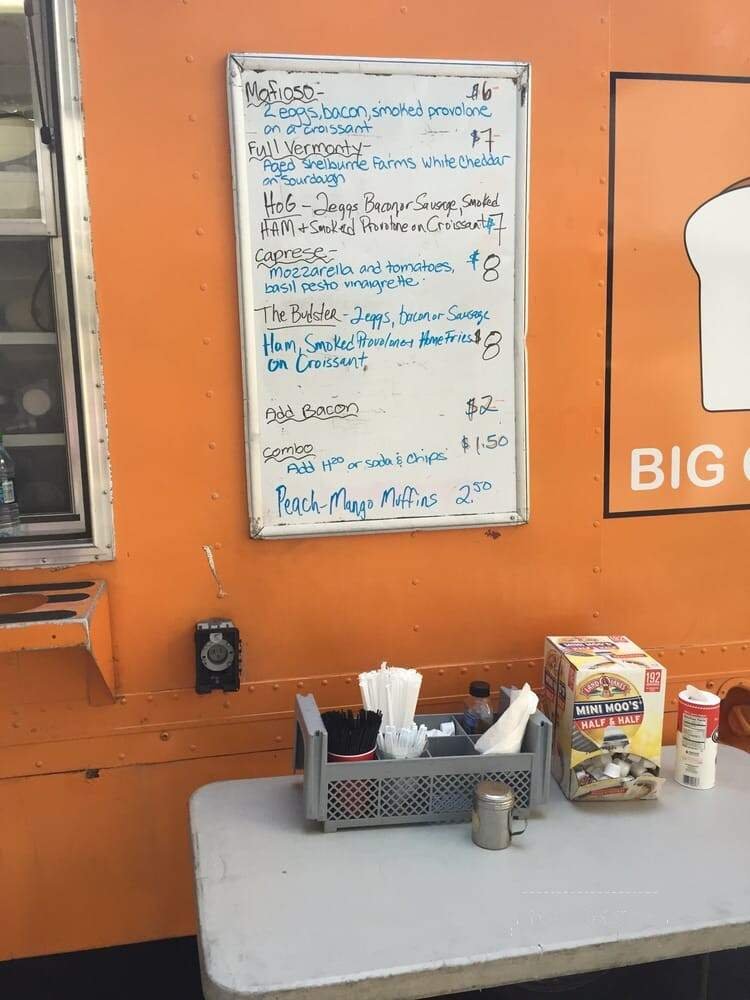 Mafioso- $6
2 eggs, bacon, smoked provolone
on a croissant
Full Vermonty- $7
Aged Shelburne Farms White Cheddar
on Sourdough
HOG - 2eggs Bacon or Sausage, Smoked
HAM + Smoked Provolone on Croissant $7
Caprese- $8
mozzarella and tomatoes,
basil pesto vinaigrette.
The Budster - 2eggs, bacon or Sausage
Ham, Smoked Provolone + Home Fries $8
on Croissant
Add Bacon $2
combo $1.50
Add H20 or soda & chips
Peach-Mango Muffins 2.50
BIG
LAND O LAKES
192
MINI MOO'S
HALF & HALF